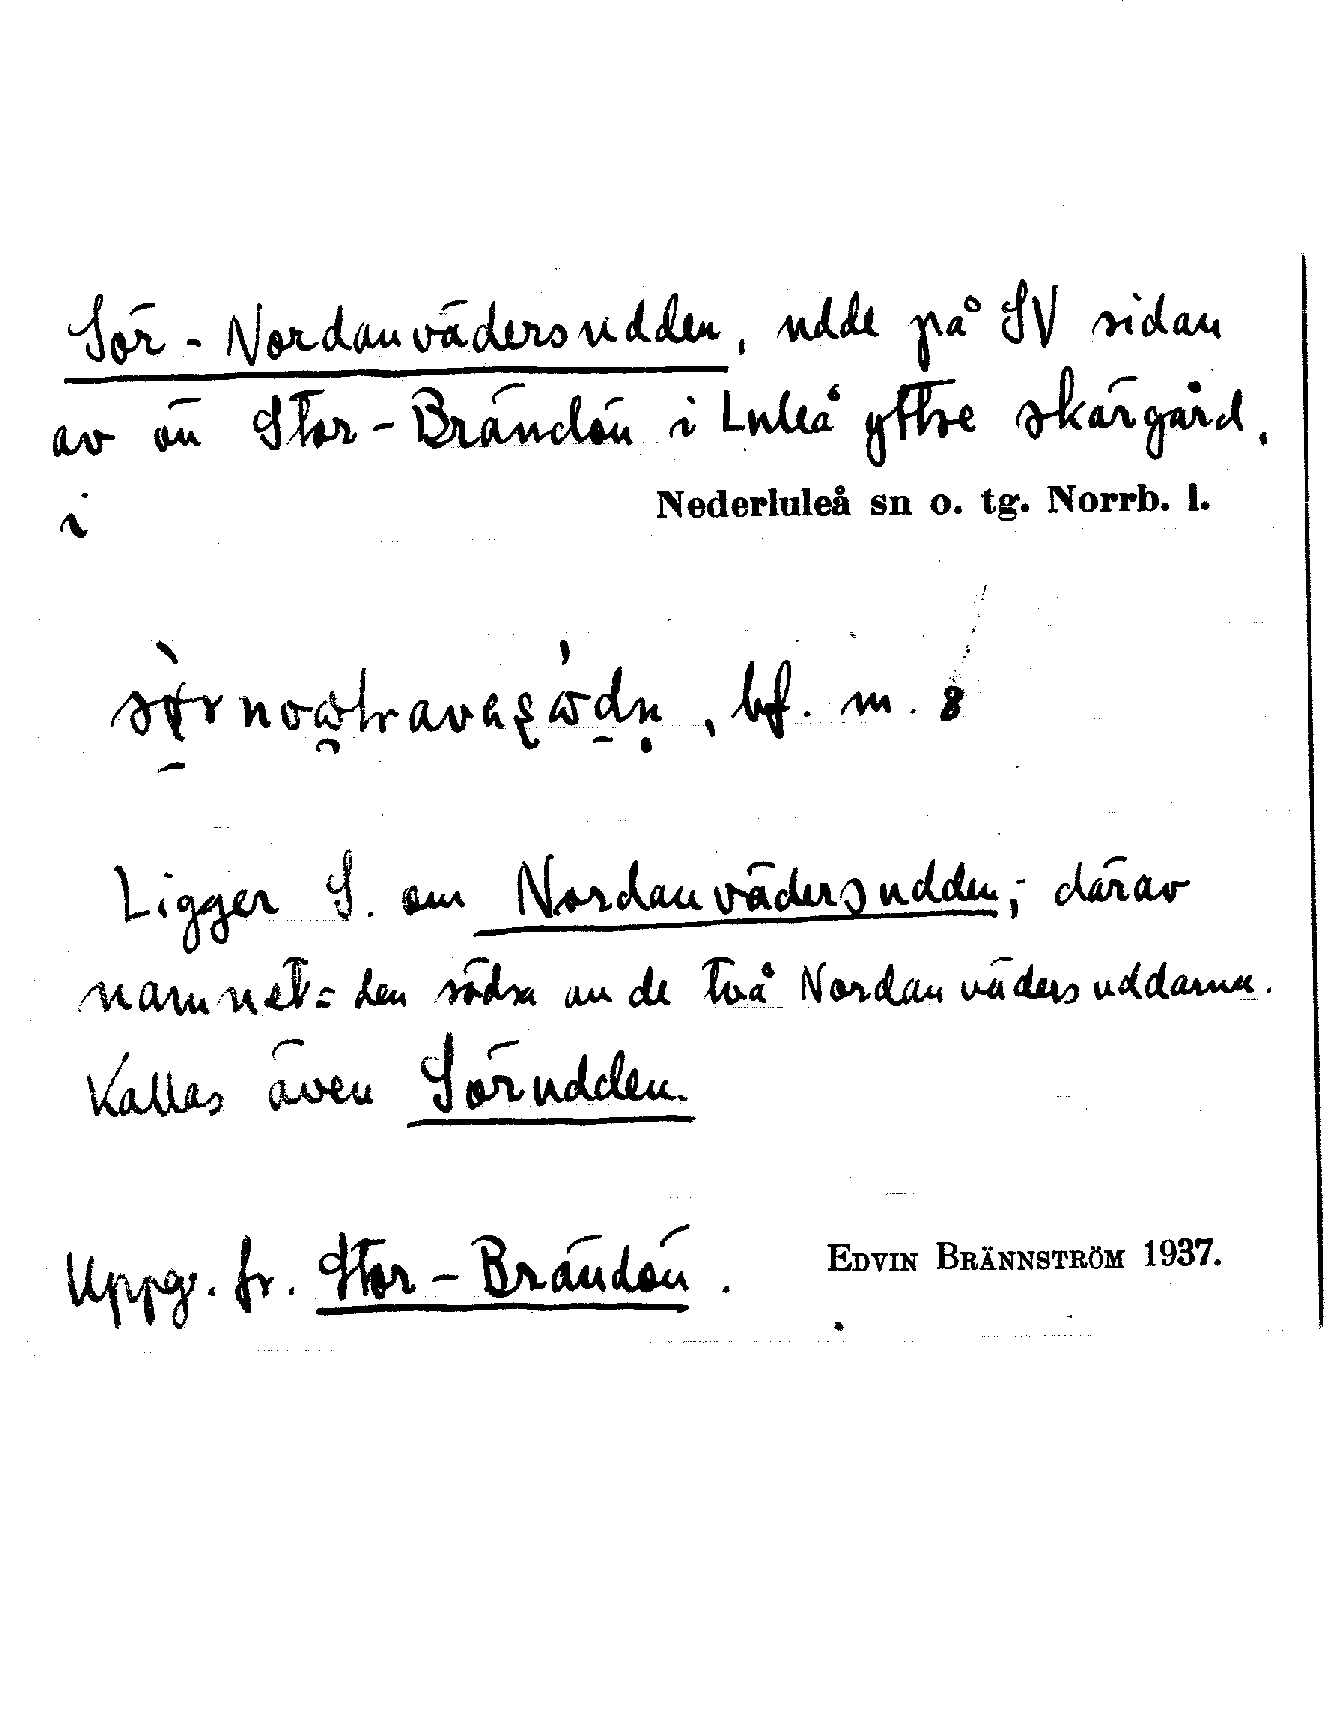 Sör-Nordanvädersudden, udde på SV sidan
av ön Stor-Brändön i Luleå yttre skärgård,
i Nederluleå sn o. tg. Norrb. l.
, bf. m. 8
Ligger S. om Nordanvädersudden; därav
namnet = den södra av de två Nordanvädersuddarna.
Kallas även Sörudden.
Uppg. fr. Stor-Brändön. EDVIN BRÄNNSTRÖM 1937.